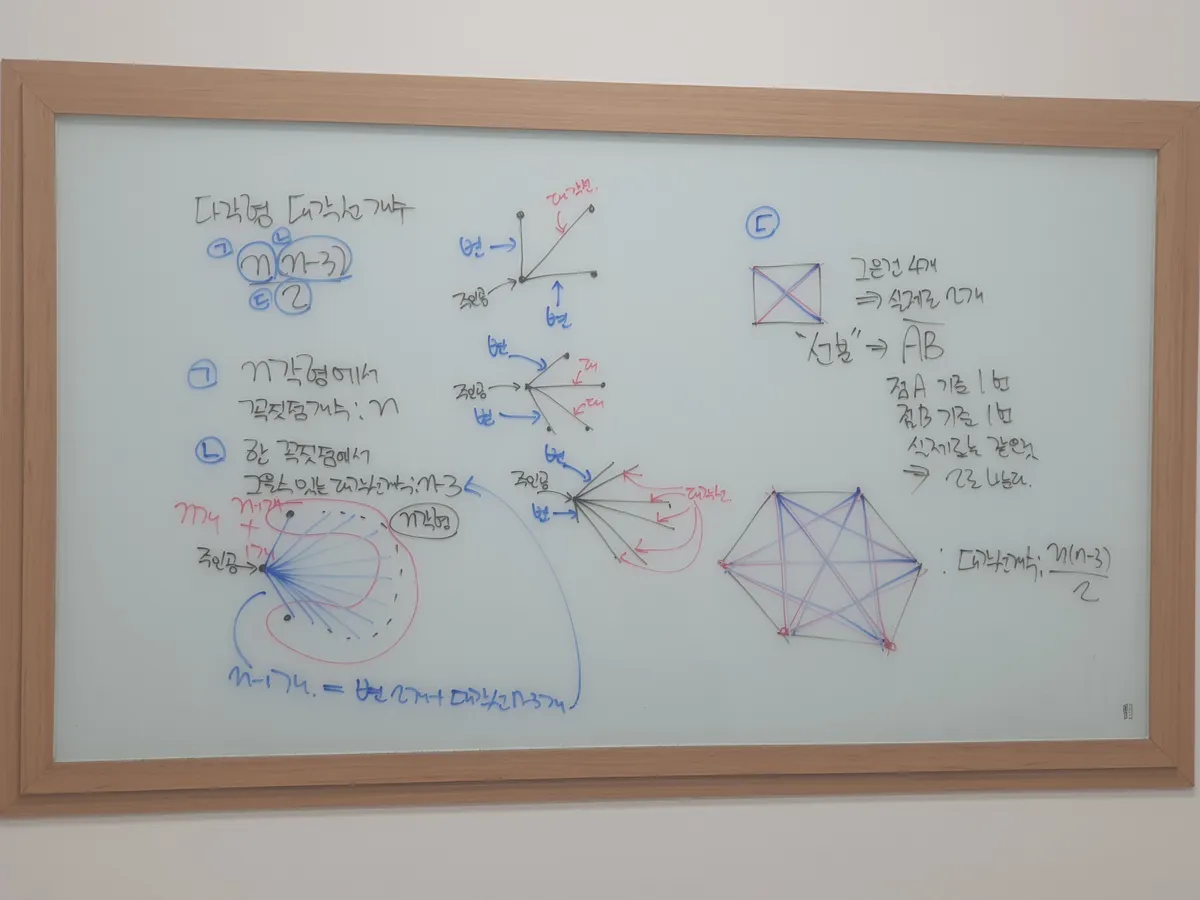 다각형 대각선 개수
ㄱ ㄴ
n(n-3)
ㄷ 2
ㄱ n각형에서
꼭짓점개수: n
ㄴ 한 꼭짓점에서
그을수 있는 대각선개수: n-3
n개 n-1개
+
1개
주인공
n각형
n-1개. = 변 2개 + 대각선 n-3개
대각선.
변
주인공
변
변
대
주인공
대
변
변
주인공
대각선
변
ㄷ
그은건 4개
⇒ 실제로 2개
"선분" ⇒ AB
점A 기준 1번
점B 기준 1번
실제로는 같은것
⇒ 2로 나눈다.
: 대각선개수: n(n-3)
2